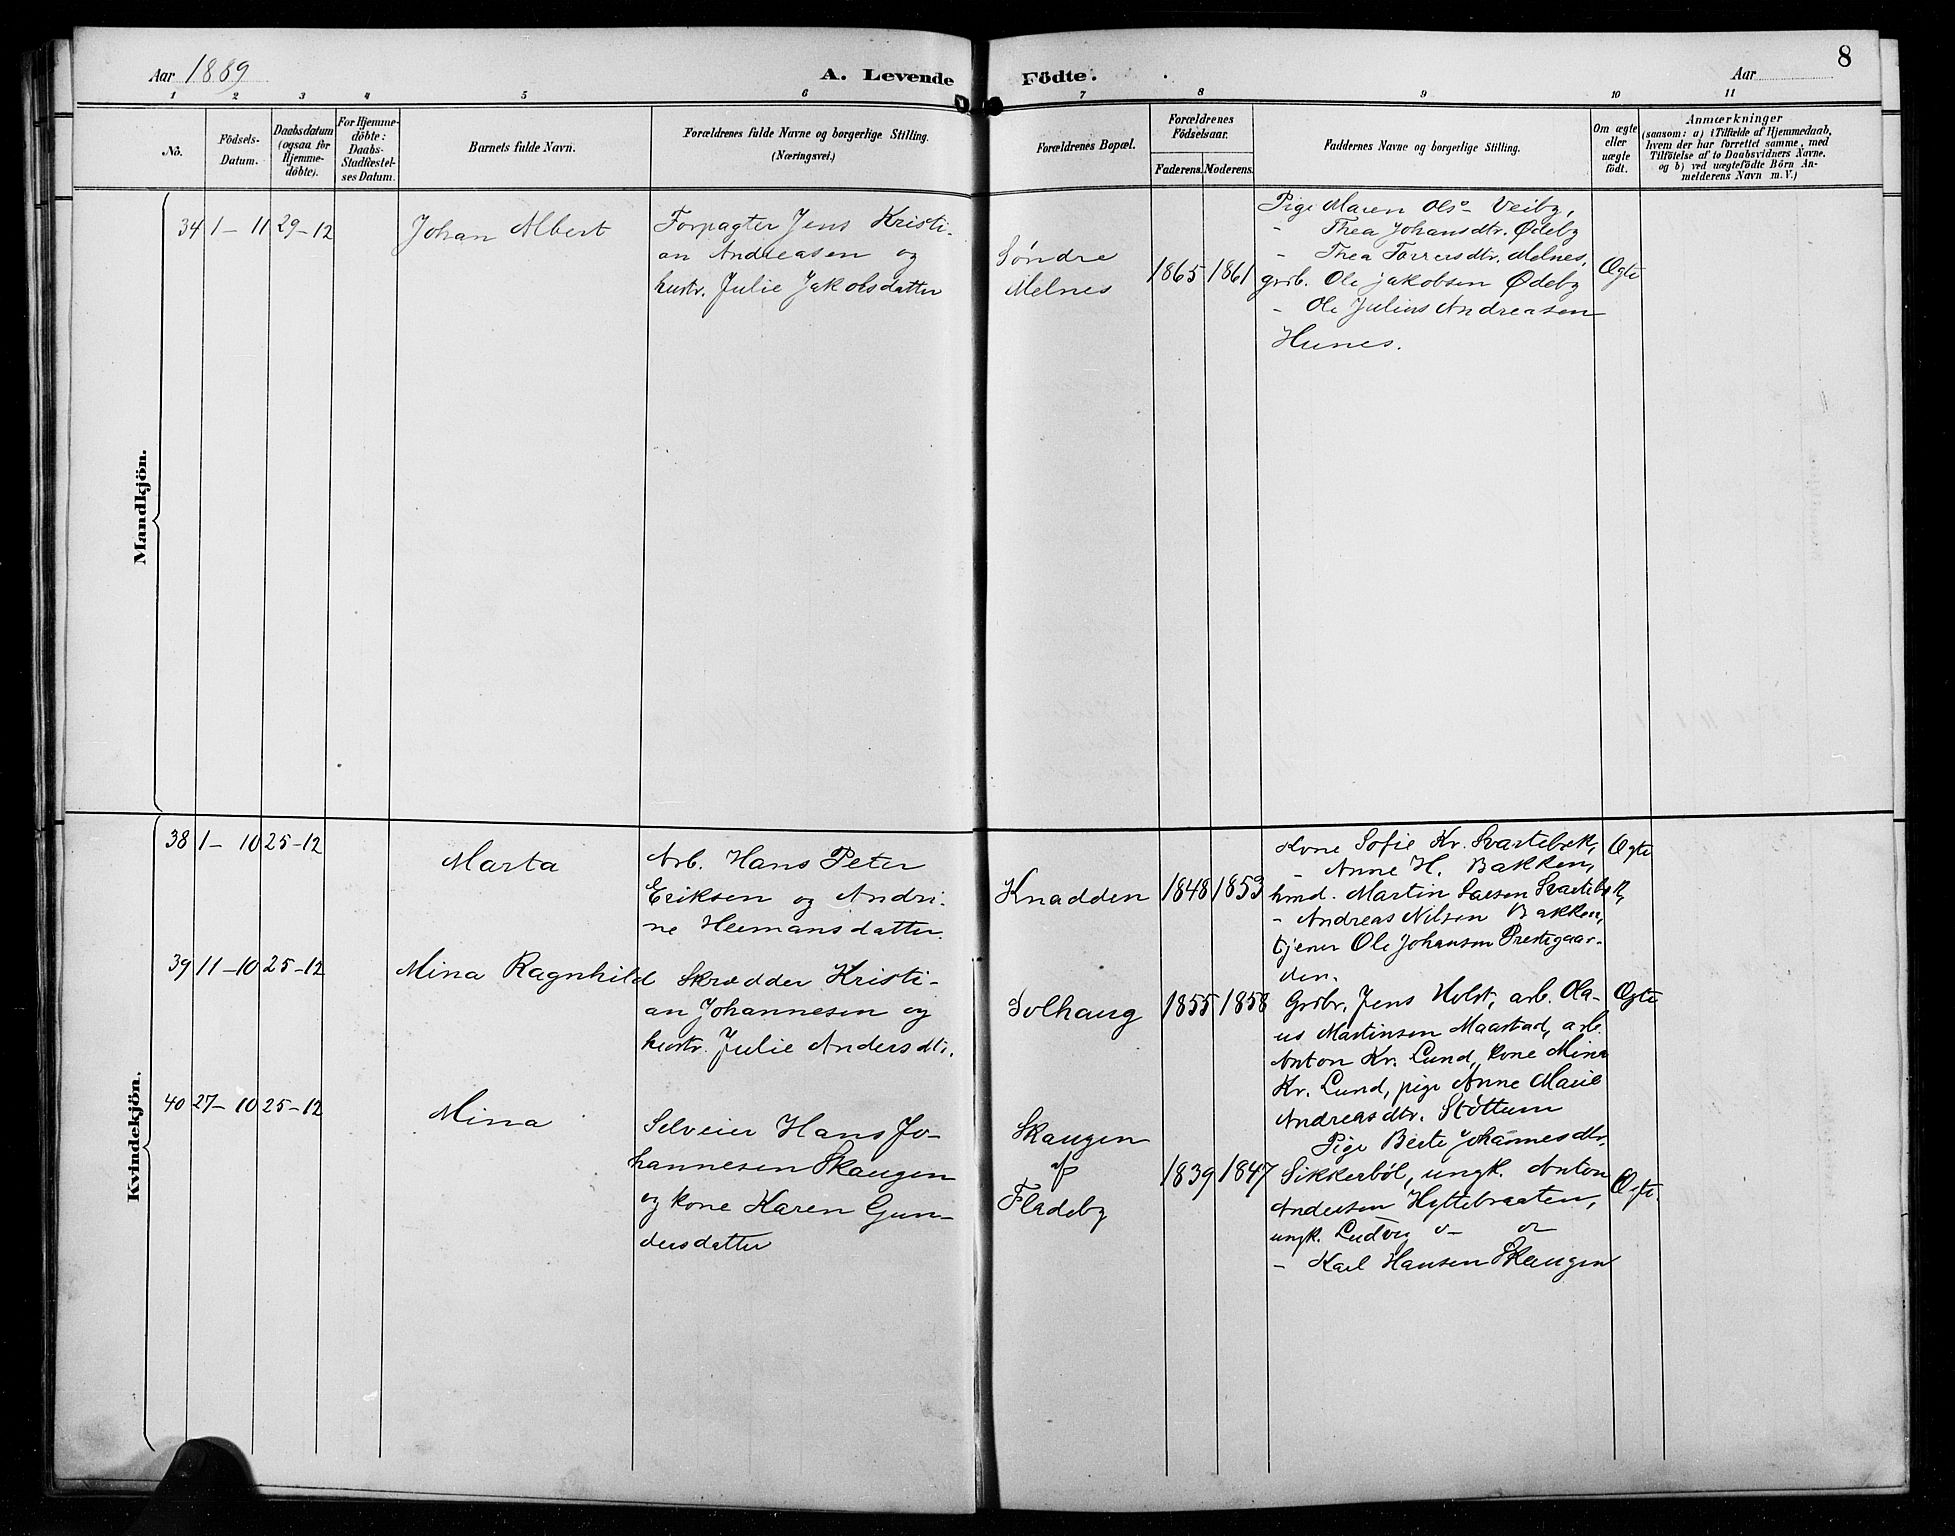 Aar 1889
A. Levende Födte.
8
Aar
1 2 3 4 5 6 7 8 9 10 11
No.
Födsels-
Datum.
Daabsdatum
(ogsaa for
Hjemme-
döbte).
For Hjemme-
döbte:
Daabs-
Stadfæstel-
ses Datum.
Barnets fulde Navn.
Forældrenes fulde Navne og borgerlige Stilling.
(Næringsvei.)
Forældrenes Bopæl.
Forældrenes
Födselsaar.
Faderens. Moderens.
Faddernes Navne og borgerlige Stilling.
Om ægte
eller
uægte
födt.
Anmærkninger
(saasom: a) i Tilfælde af Hjemmedaab,
hvem der har forrettet samme, med
Tilföielse af to Daabsvidners Navne.
og b) ved uægtefödte Börn An-
melderens Navn m. V.)
Mandkjön.
34 1-11 29-12
Johan Albert
Forpagter Jens Kristi-
an Andreasen og
hustr. Julie Jakobsdatter
Søndre
Melnes
1865 1861
Pige Maren Ols- Veiby,
- Thea Johansdtr. Ødeby
- Thea Torersdtr. Melnes,
grdb. Ole Jakobsen Ødeby
- Ole Julius Andreasen
Hunes.
Ægte
Kvindekjön.
38 1-10 25-12
Marta
Arb. Hans Peter
Eriksen og Andri-
ne Hermansdatter.
Knadden
1848 1853
Kone Sofie Kr. Svartebek,
- Anne H. Bakken,
hmd. Martin Larsen Svartebek,
- Andreas Nilsen Bakken,
tjener Ole Johansen Prestegaar-
den.
Ægte
39 11-10 25-12
Mina Ragnhild
Skrædder Kristi-
an Johannesen og
hustr. Julie Andersdtr.
Solhaug
1855 1858
Grdbr. Jens Holst, arb. Ola-
us Martinsen Maarstad, arb.
Anton Kr. Lund, kone Mina
Kr. Lund, pige Anne Marie
Andreasdtr. Støttum
Ægte
40 27-10 25-12
Mina
Selveier Hans Jo-
hannesen Skaugen
og kone Karen Gun-
dersdatter
Skaugen
af
Fladeby
1839 1847
Pige Berte Johannesdtr.
Sikkerböl, ungk. Anton
Andersen Hyttebraaten,
ungk. Ludvig
- Karl Hansen Skaugen
Ægte